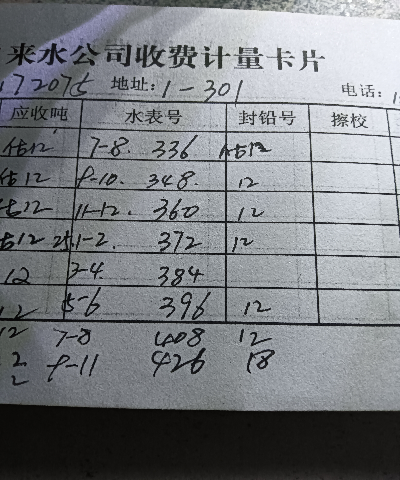 来水公司收费计量卡片
172075 地址:1-301 电话:
应收吨 水表号 封铅号 擦校
估12 7-8. 336 估12
估12 9-10. 348. 12
估12 11-12. 360 12
估12 25.1-2. 372 12
12 3-4. 384
12 5-6 396 12
12 7-8 408 12
9-11 426 18